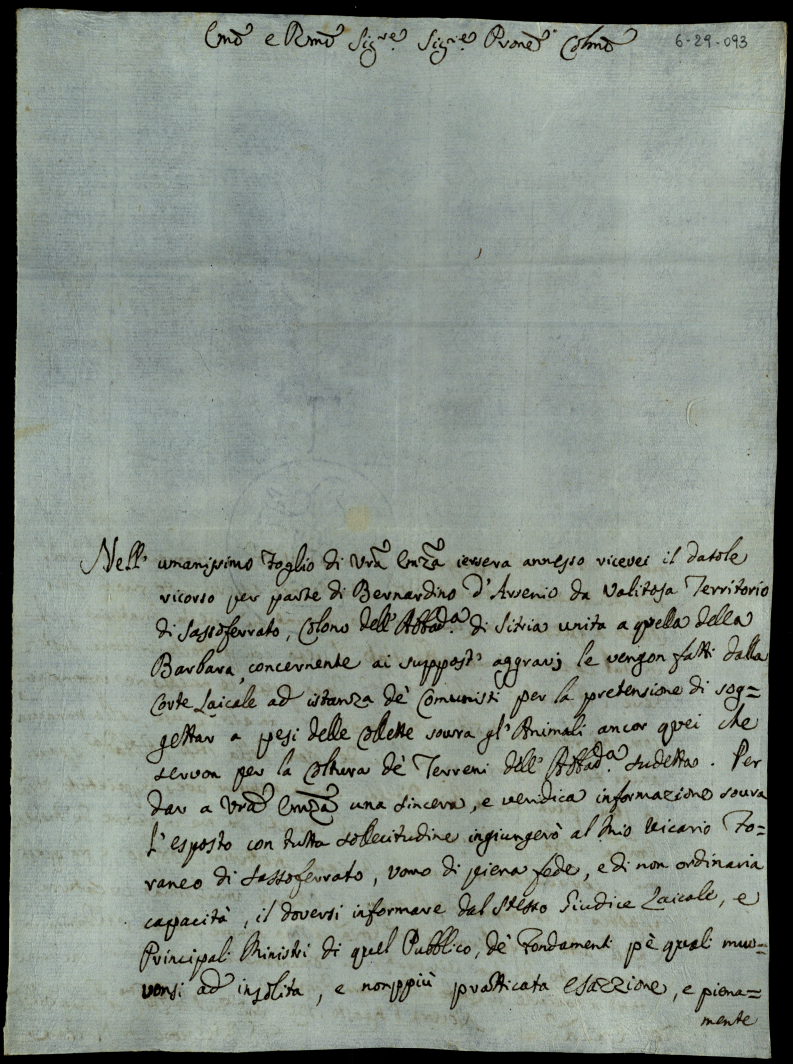 Emō e Rmō Sig.re Sig.re Prone Colmō
6-29-093
Nell' umanissimo Foglio di Vrā Emzā iersera annesso ricevei il datole
ricorso per parte di Bernardino d'Arsenio da Valitosa Territorio
di Sassoferrato, Colono dell'Abbad.a di Sitria unita a quella della
Barbara, concernente ai suppost' aggravj le vengon fatti dalla
Corte Laicale ad istanza dè Comunisti per la pretensione di sog=
gettar a pesi delle Collette sovra gl'Animali ancor quei che
servon per la Coltura dè Terreni dell'Abbad.a sudetta. Per
dar a Vrā Emzā una sincera, e veridica informazione sovra
l'esposto con tutta sollecitudine ingiungerò al mio Vicario Fo=
raneo di Sassoferrato, uomo di piena fede, e di non ordinaria
capacità, il doversi informare dal stesso Giudice Laicale, e
Principali Ministri di quel Pubblico, dè Fondamenti pè quali muo=
vonsi ad insolita, e nonppiù pratticata esazzione, e piena=
mente